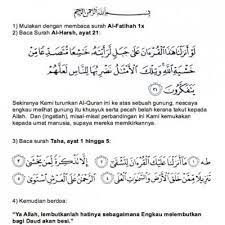 بسم الله الرحمن الرحيم
1) Mulakan dengan membaca surah Al-Fatihah 1x
2) Baca Surah Al-Harsh, ayat 21:
لَوْ أَنزَلْنَا هَٰذَا الْقُرْءَانَ عَلَىٰ جَبَلٍ لَّرَأَيْتَهُ خَٰشِعًا مُّتَصَدِّعًا مِّنْ
خَشْيَةِ اللَّهِ وَتِلْكَ الْأَمْثَٰلُ نَضْرِبُهَا لِلنَّاسِ لَعَلَّهُمْ
يَتَفَكَّرُونَ ٢١
Sekiranya Kami turunkan Al-Quran ini ke atas sebuah gunung, nescaya
engkau melihat gunung itu khusyuk serta pecah belah kerana takut kepada
Allah. Dan (ingatlah), misal-misal perbandingan ini Kami kemukakan
kepada umat manusia, supaya mereka memikirkannya.
3) Baca surah Taha, ayat 1 hingga 5:
طه ١ مَا أَنزَلْنَا عَلَيْكَ الْقُرْءَانَ لِتَشْقَىٰ ٢ إِلَّا تَذْكِرَةً لِّمَن يَخْشَىٰ ٣
تَنزِيلًا مِّمَّنْ خَلَقَ الْأَرْضَ وَالسَّمَٰوَٰتِ الْعُلَى ٤ الرَّحْمَٰنُ عَلَى الْعَرْشِ اسْتَوَىٰ ٥
4) Kemudian berdoa:
"Ya Allah, lembutkanlah hatinya sebagaimana Engkau melembutkan
bagi Daud akan besi."